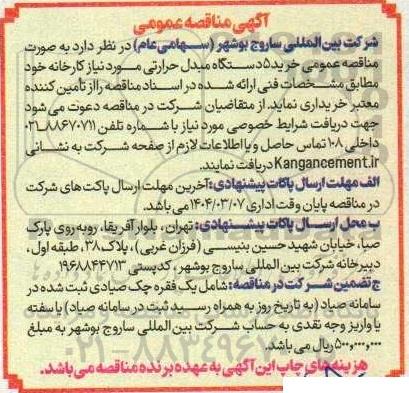 آگهی مناقصه عمومی
شرکت بین المللی ساروج بوشهر (سهامی عام) در نظر دارد به صورت
مناقصه عمومی خرید ۵ دستگاه مبدل حرارتی مورد نیاز کارخانه خود
مطابق مشخصات فنی ارائه شده در اسناد مناقصه را از تأمین کننده
معتبر خریداری نماید. از متقاضیان شرکت در مناقصه دعوت می شود
جهت دریافت شرایط خصوصی مورد نیاز با شماره تلفن ۸۸۶۷۰۷۱۱-۰۲۱
داخلی ۱۰۸ تماس حاصل و یا اطلاعات لازم از صفحه شرکت به نشانی
Kangancement.ir دریافت نمایند.
الف مهلت ارسال پاکات پیشنهادی: آخرین مهلت ارسال پاکت های شرکت
در مناقصه پایان وقت اداری ۱۴۰۴/۰۳/۰۷ می باشد.
ب محل ارسال پاکات پیشنهادی: تهران، بلوار آفریقا، روبه روی پارک
صبا، خیابان شهید حسین بنیسی (فرزان غربی)، پلاک ۳۸، طبقه اول،
دبیرخانه شرکت بین المللی ساروج بوشهر، کدپستی ۱۹۶۸۸۴۴۷۱۳
ج تضمین شرکت در مناقصه: شامل یک فقره چک صیادی ثبت شده در
سامانه صیاد (به تاریخ روز به همراه رسید ثبت در سامانه صیاد) یا سفته
یا واریز وجه نقدی به حساب شرکت بین المللی ساروج بوشهر به مبلغ
۵۰۰,۰۰۰,۰۰۰ ریال می باشد.
هزینه های چاپ این آگهی به عهده برنده مناقصه می باشد.